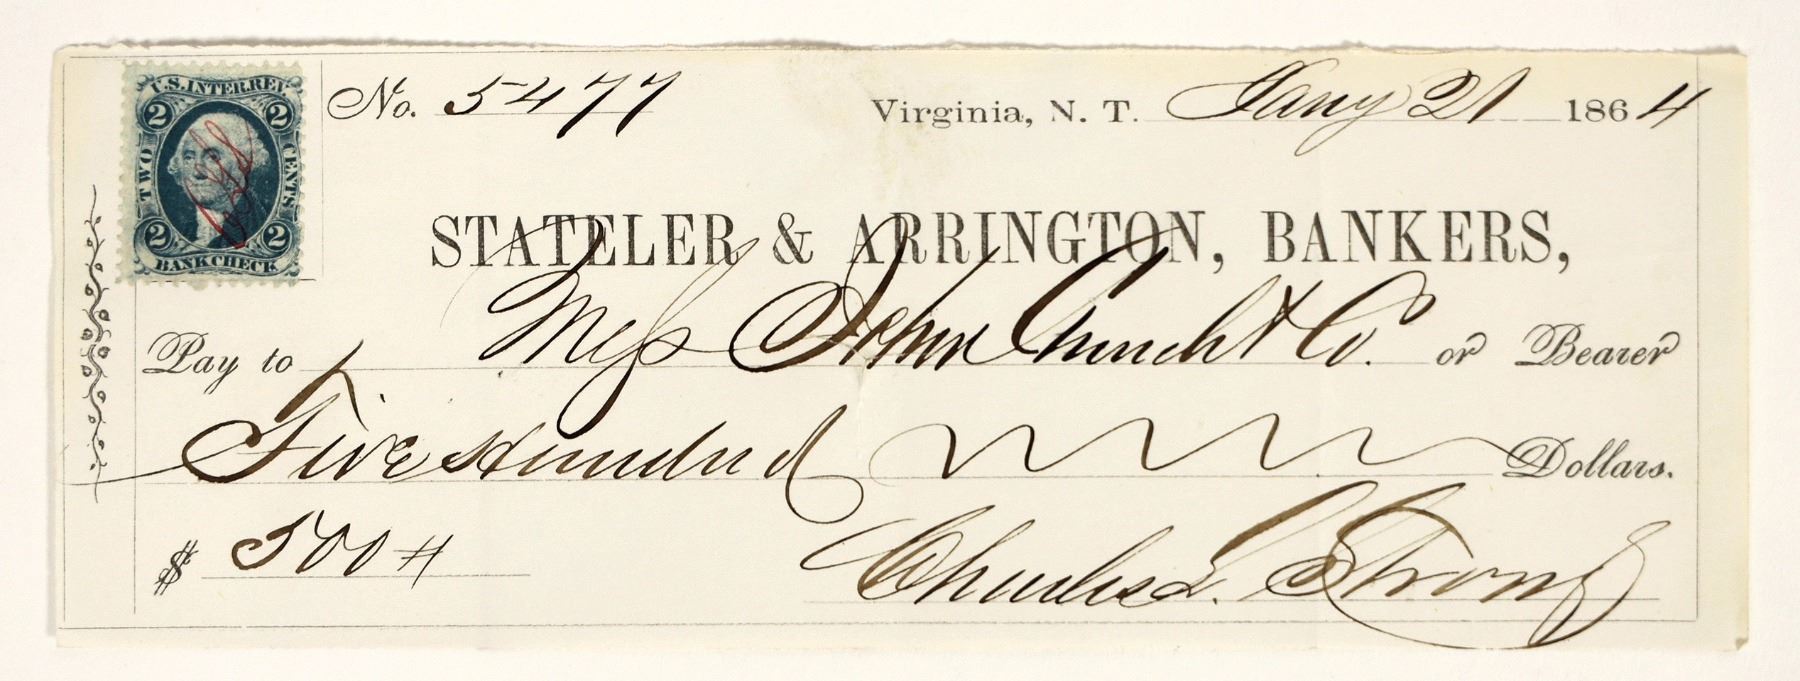 U.S. INTER. REV.
2 2
TWO CENTS
2 2
BANK CHECK
No. 5477 Virginia, N. T. Jany 21 1864
STATELER & ARRINGTON, BANKERS,
Pay to Mess John Church & Co. or Bearer
Five Hundred Dollars.
$ 500 Charles L. Strong